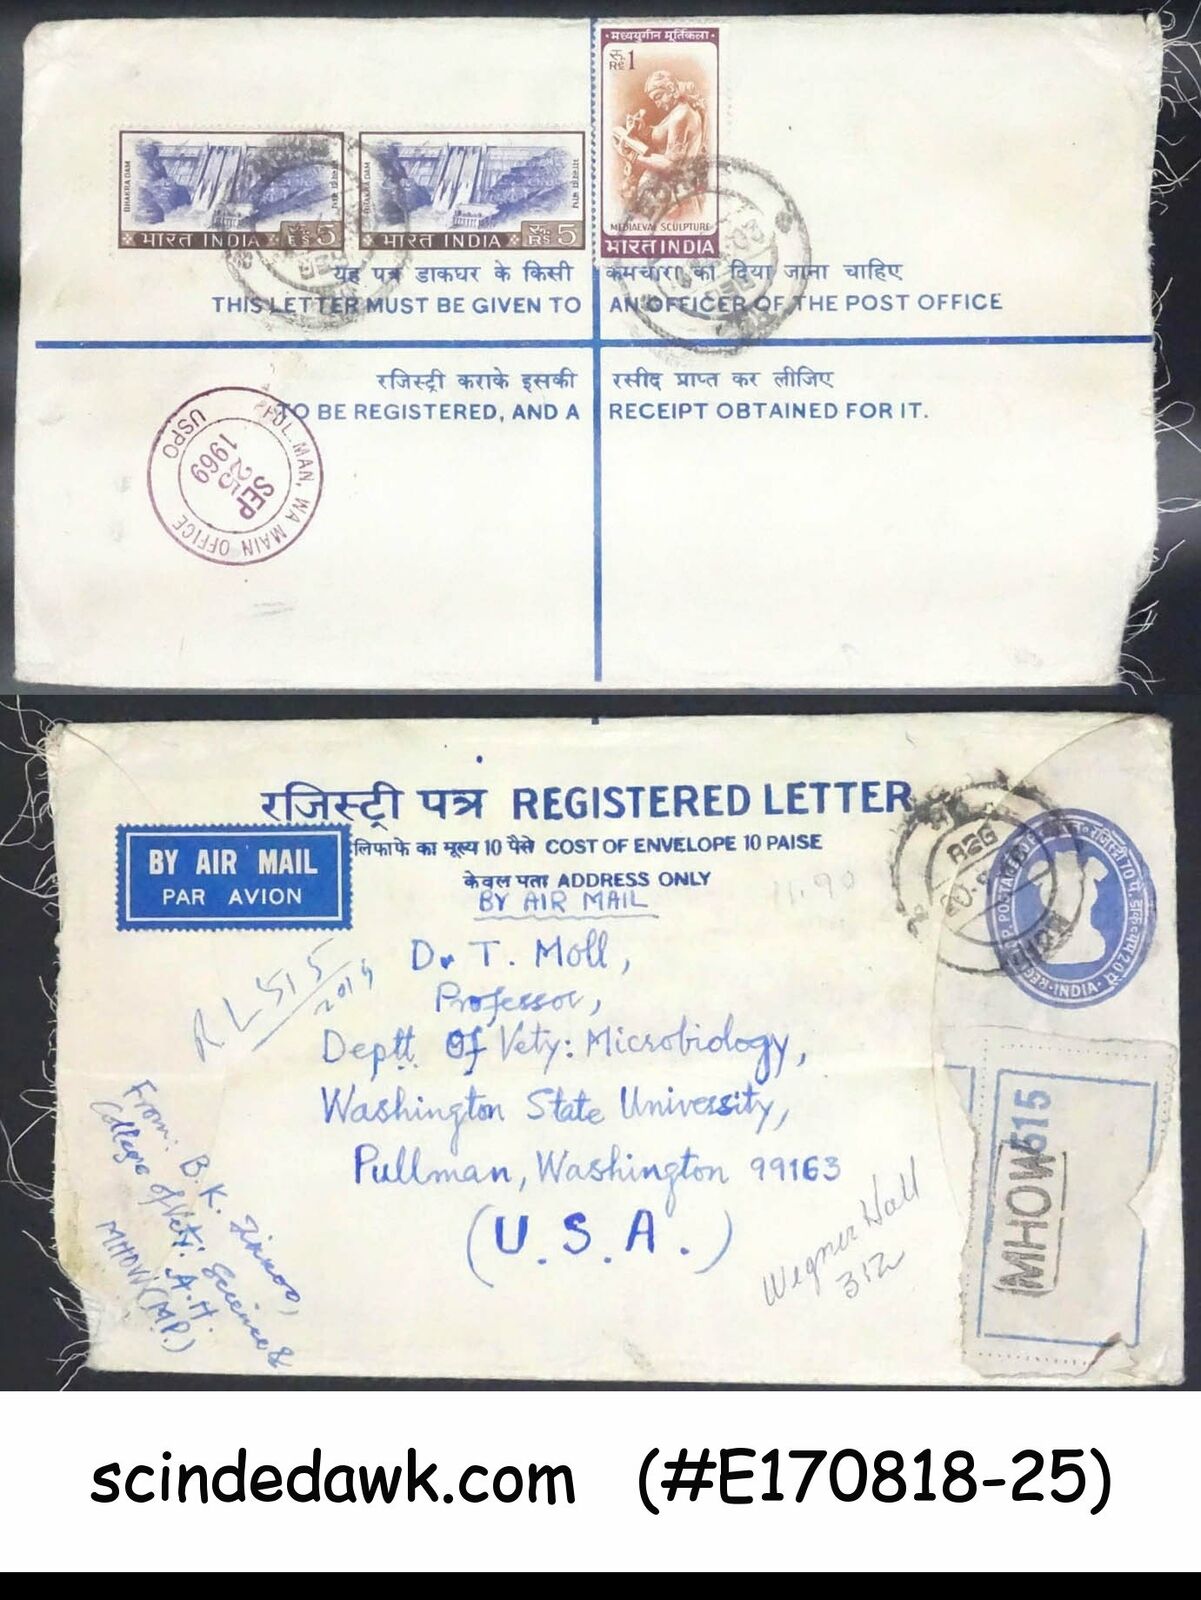 मध्ययुगीन मूर्तिकला
रु. Rs 1
MEDIAEVAL SCULPTURE
भारत INDIA
BHAKRA DAM
भाखड़ा बांध
भारत INDIA रु. Rs 5
BHAKRA DAM
भाखड़ा बांध
भारत INDIA रु. Rs 5
यह पत्र डाकघर के किसी कर्मचारी को दिया जाना चाहिए
THIS LETTER MUST BE GIVEN TO AN OFFICER OF THE POST OFFICE
रजिस्ट्री कराके इसकी रसीद प्राप्त कर लीजिए
TO BE REGISTERED, AND A RECEIPT OBTAINED FOR IT.
PULLMAN, WA MAIN OFFICE
USPO
SEP
25
1969
रजिस्ट्री पत्र REGISTERED LETTER
लिफाफे का मूल्य 10 पैसे COST OF ENVELOPE 10 PAISE
केवल पता ADDRESS ONLY
BY AIR MAIL
PAR AVION
BY AIR MAIL
11.90
REG
INDIA
RL 515
Dr T. Moll,
Professor,
Deptt. Of Vety: Microbiology,
Washington State University,
Pullman, Washington 99163
(U.S.A.)
Wegner Hall
312
From: B. K.
College of Vety: Science &
A.H.
MHOW (M.P.)
MHOW 515
scindedawk.com (#E170818-25)